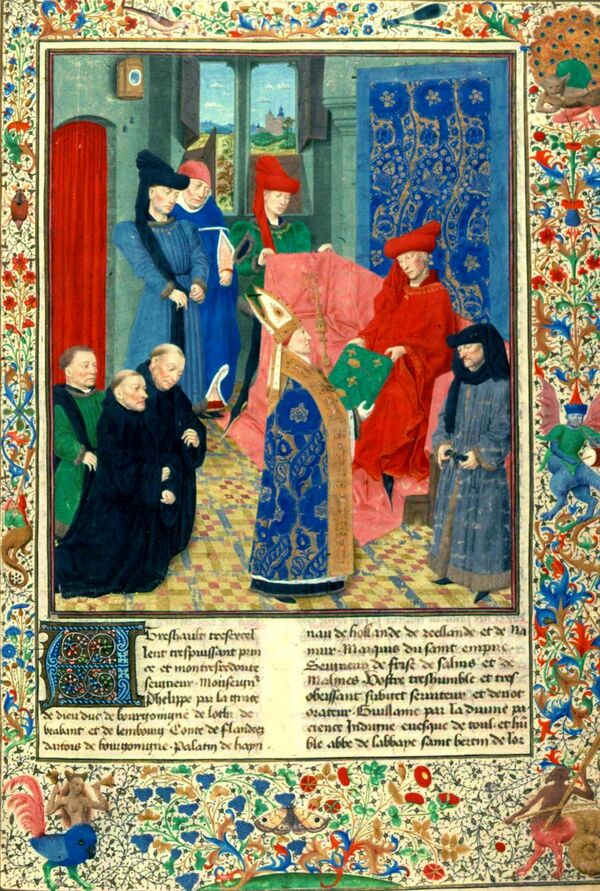 A treshault tresexcel
lent trespuissant prin
ce et mon tresredoute
seigneur Monseignr
Phelippe par la grace
de dieu duc de bourgoingne de loth.
brabant et de lembourg Conte de flandres
dartois de bourgoingne Palatin de hayn
nau de hollande de zeellande et de Na
mur Marquis du saint empire
Seigneur de frise de salins et de
Malines Vostre treshumble et tres
obeissant subiect serviteur et devot
orateur Guillame par la divine pa
cience Indigne evesque de toul et hũ
ble abbe de labbaye saint bertin de lor